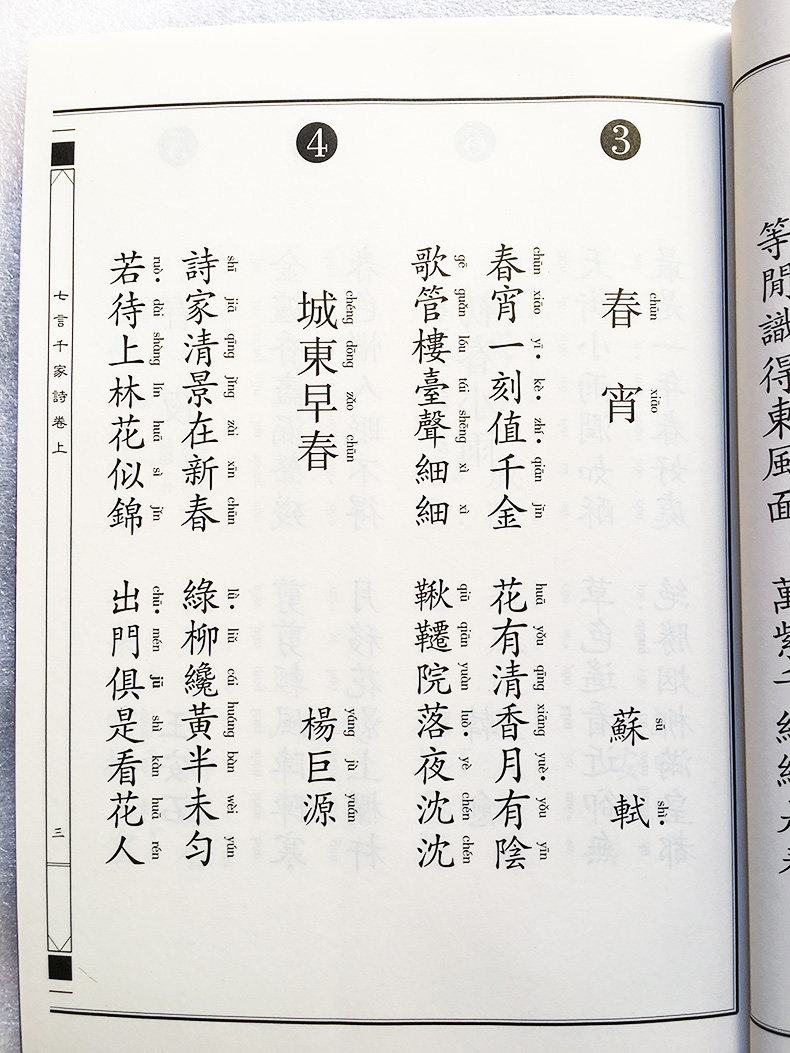 等閒識得東風面 萬紫千
❸
春宵 蘇軾
chūn xiāo sū shì•
春宵一刻值千金 花有清香月有陰
chūn xiāo yī• kè• zhí• qiān jīn huā yǒu qīng xiāng yuè• yǒu yīn
歌管樓臺聲細細 鞦韆院落夜沈沈
gē guǎn lóu tái shēng xì xì qiū qiān yuàn luò• yè chén chén
❹
城東早春 楊巨源
chéng dōng zǎo chūn yáng jù yuán
詩家清景在新春 綠柳纔黃半未勻
shī jiā qīng jǐng zài xīn chūn lǜ• liǔ cái huáng bàn wèi yún
若待上林花似錦 出門俱是看花人
ruò• dài shàng lín huā sì jǐn chū• mén jū shì kàn huā rén
七言千家詩卷上 三